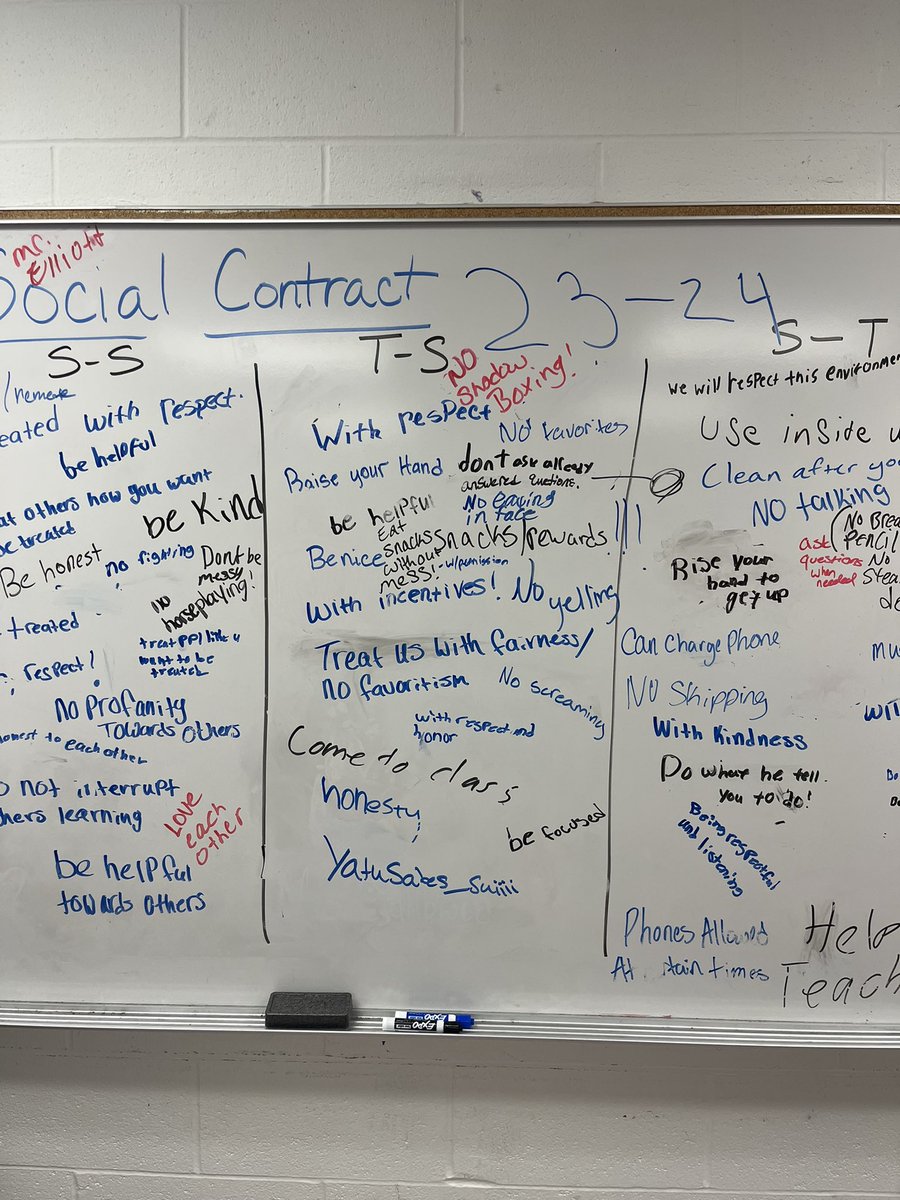 mr.
Elliott
Social Contract 23-24
S-S
with respect.
be helpful
others how you want
be Kind
Be honest
no fighting
Dont be
messy
no
horseplaying!
treated
treat ppl like u
want to be
respect!
No Profanity
Towards others
to each other
not interrupt
learning
Love
each
other
be helpful
towards others
T-S
NO
Shadow
Boxing!
With resPect
No favorites
Raise your Hand
dont ask already
answered questions.
be helpful
No
in face
Eat
snacks
without
mess!
-w/permission
snacks/rewards!!!
Be nice
With incentives!
No yelling
Treat us With fairness/
no favoritism
No screaming
with respect and
honor
Come to class
honesty
be focused
Yatusabes_suiiii
S-T
we will respect this
Use inside
Clean after
NO talking
ask
questions
when
needed
(No
Pencil
No
Rise your
hand to
get up
Can Charge Phone
No Skipping
With Kindness
Do what he tell
you to do!
Being respectful
and listening
Phones Allowed
At
times
Help
EXPO
EXPO